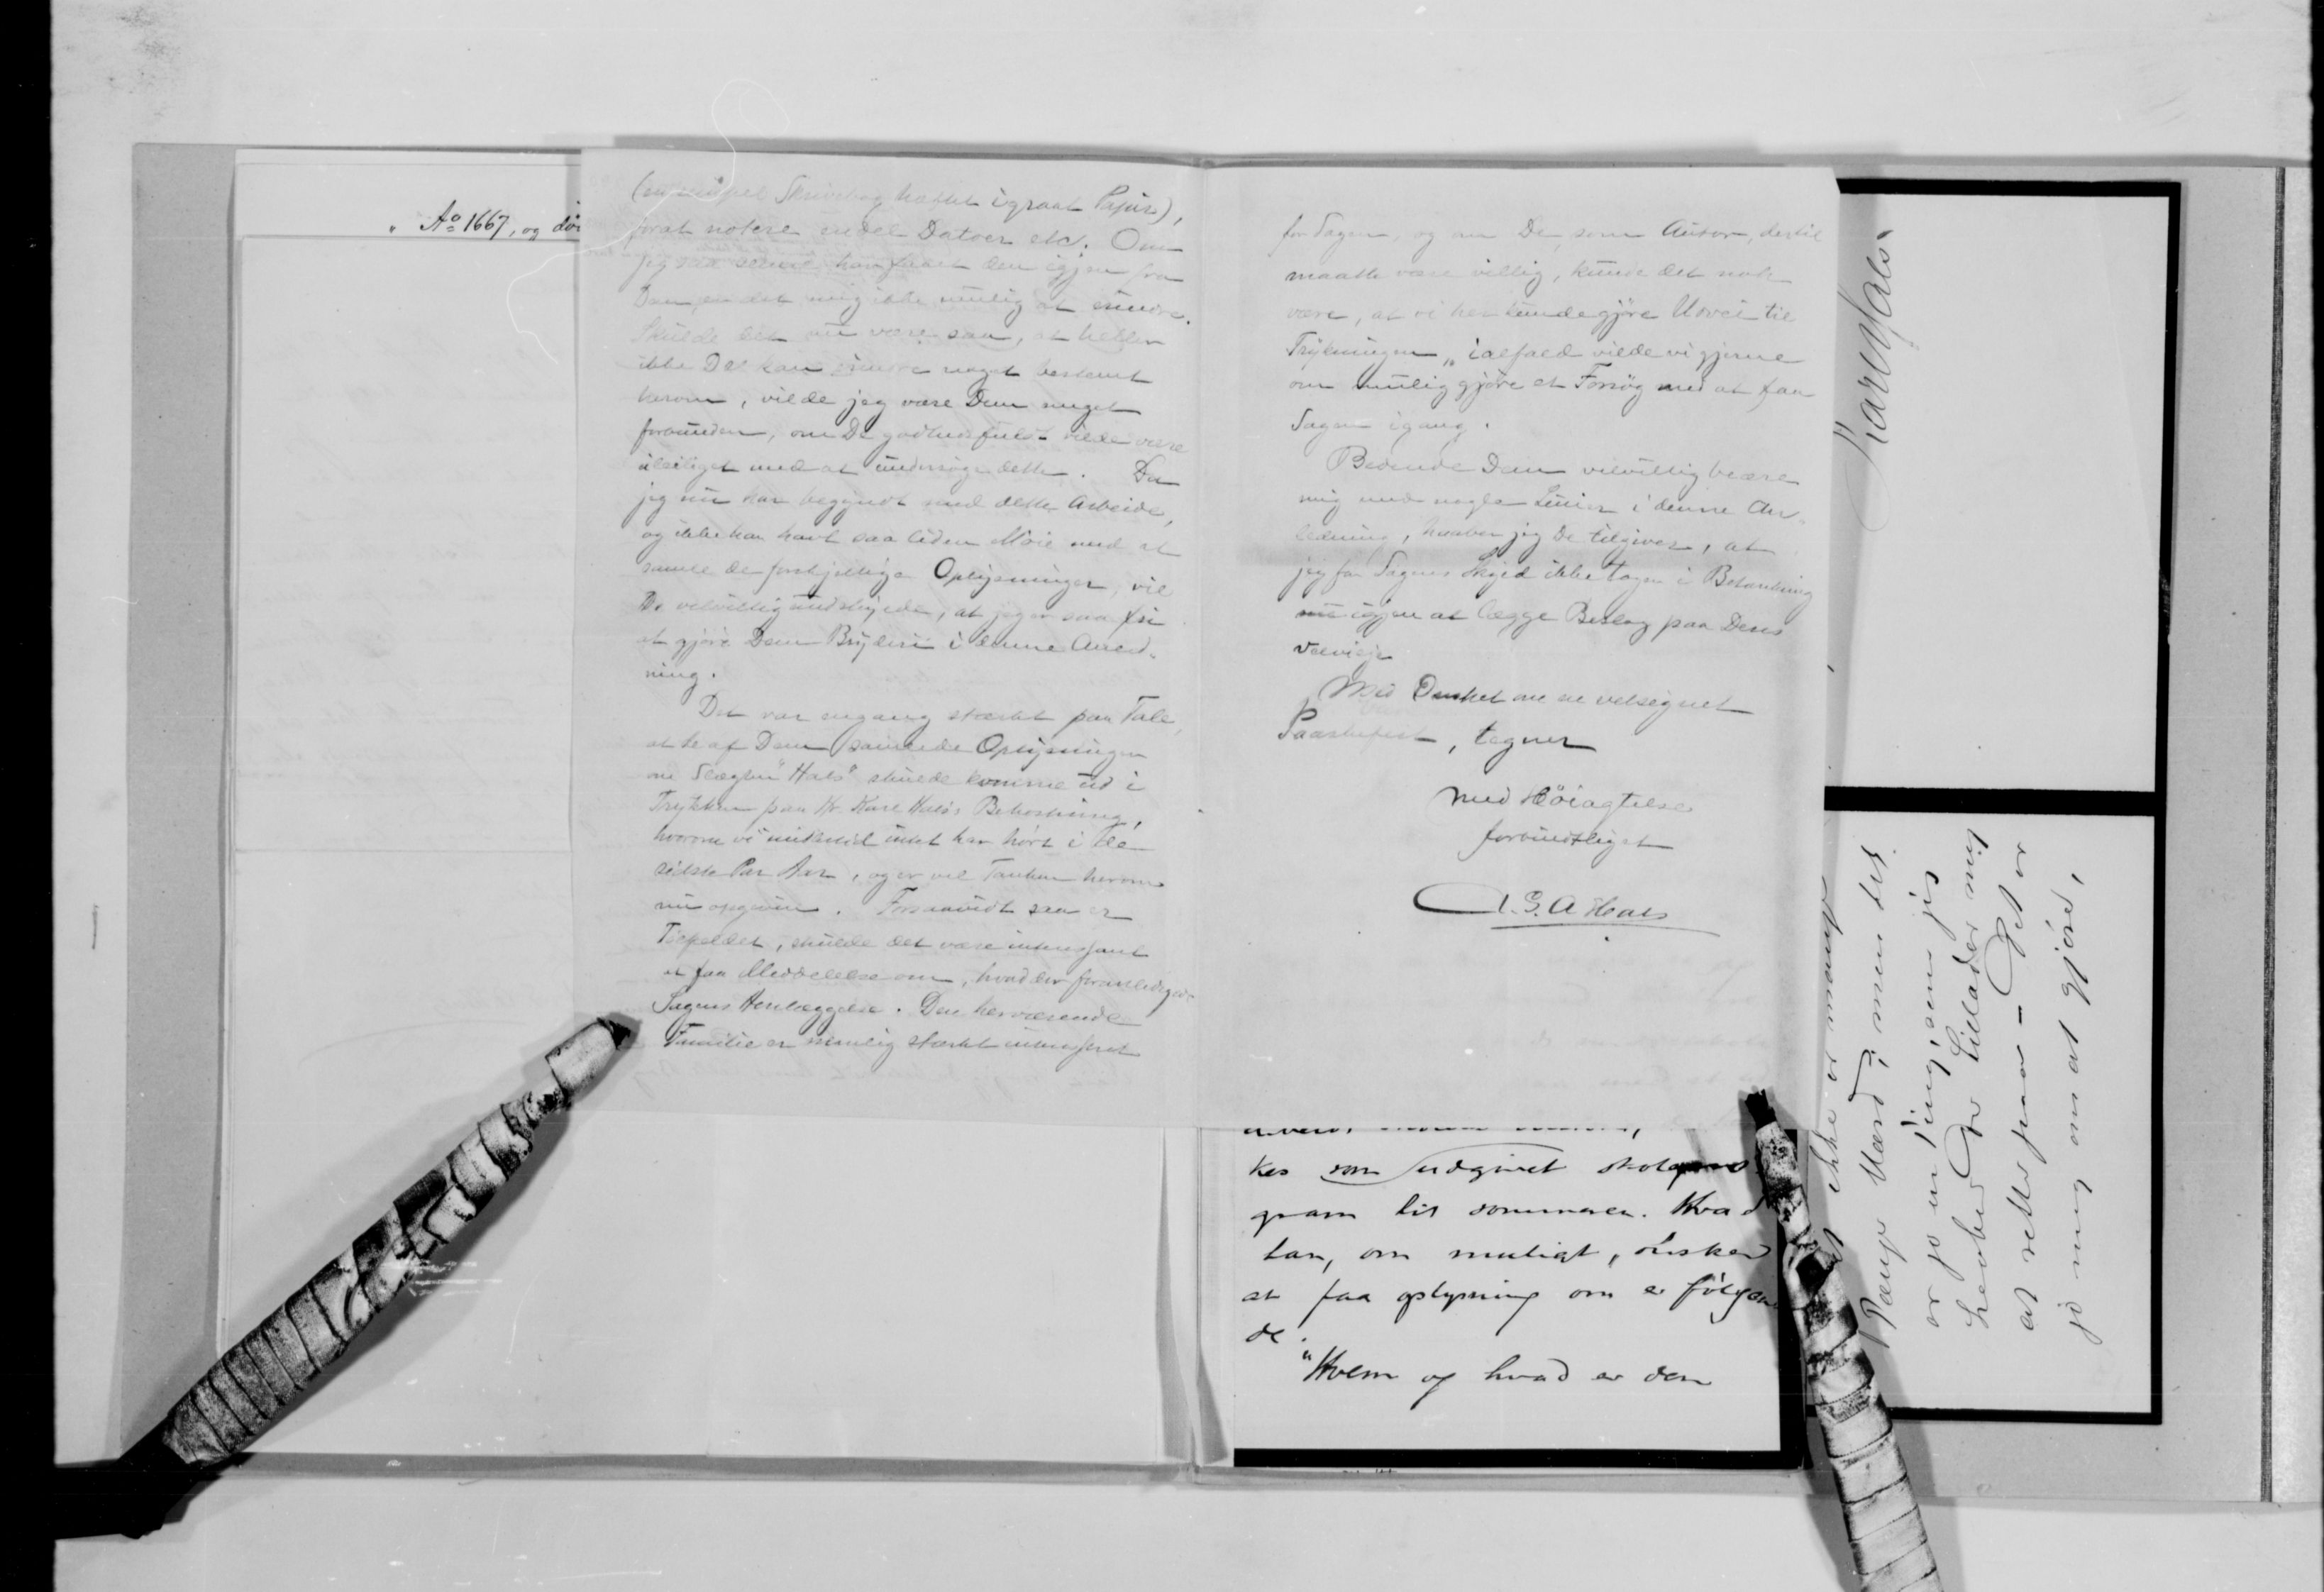 „ Aº 1667, og dö
(en simpel Skrivebog heftet i graat Papir),
forat notere endel Datoer etc. Om
jeg saa senere har faaet den igjen fra
Dem, er det mig ikke mulig at erindre.
Skulde det nu være saa, at heller
ikke De kan erindre noget bestemt
herom, vilde jeg være Dem meget
forbunden, om De godhedsfuldt vilde være
uleiliget med at undersøge dette. Da
jeg nu har begyndt med dette Arbeide,
og ikke har havt saa liden Møie med at
samle de forskjellige Oplysninger, vil
De velvillig undskylde, at jeg er saa fri
at gjøre Dem Bryderi i denne Anled-
ning.
Det var engang stærkt paa Tale,
at de af Dem samlede Oplysninger
om Slægten "Hals" skulde komme ud i
Trykken paa Hr. Karl Hals's Bekostning,
hvorom vi imidlertid intet har hørt i de
sidste Par Aar, og er vel Tanken herom
nu opgiven. Forsaavidt saa er
Tilfældet, skulde det være interessant
at faa Meddelelse om, hvad der foranlediger
Sagens Henlæggelse. Den herværende
Familie er nemlig stærkt interesseret
for Sagen, og om De, som Autor, dertil
maatte være villig, kunde det nok
være, at vi her kunde gjøre Udvei til
Trykningen, ialfald vilde vi gjerne
om mulig gjøre et Forsøg med at faa
Sagen igang.
Bedende Dem velvillig beære
mig med nogle Linier i denne An-
ledning, haaber jeg De tilgiver, at
jeg for Sagens Skyld ikke tager i Betænkning
nu igjen at lægge Beslag paa Deres
Velvilje
Med Ønsket om en velsignet
Paaskefest, tegner
med Höiagtelse
forbindtligst
A. G. A Hals
kes som udgivet skolepro-
gram til sommeren. Hvad
han, om muligt, önsker
at faa oplysning om er følgen
de.
"Hvem og hvad er den
Karl Hals
ikke er mange
Penge Værd; men det
er jo en Ting, som jeg
haaber De tillader mig
at rette paa – Det er
jo mig om at gjöre,